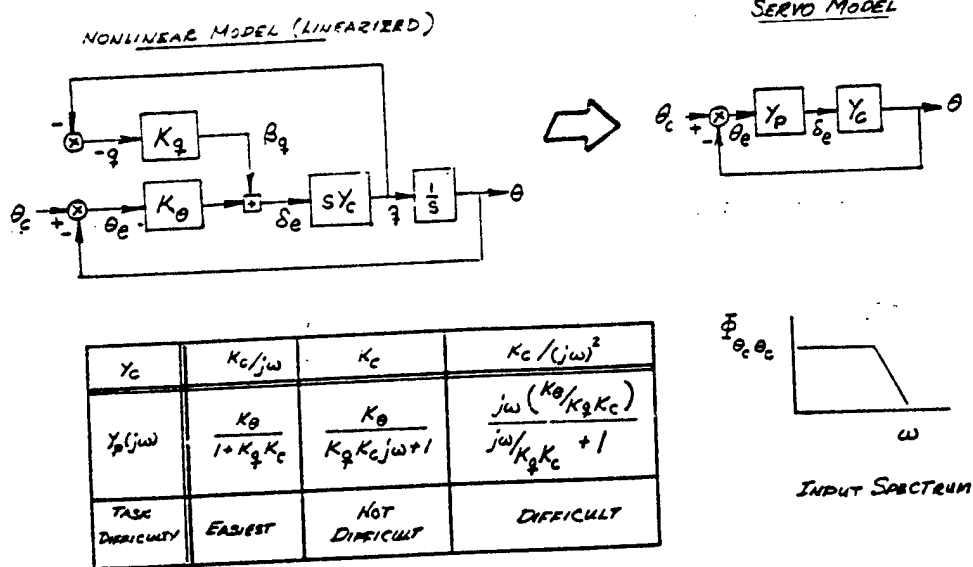 NONLINEAR MODEL (LINEARIZED)
SERVO MODEL
-
-q
K_q
β_q
θ_c
+
-
θ_e
K_θ
+
δ_e
sY_c
q
1/s
θ
θ_c
+
-
θ_e
Y_p
δ_e
Y_c
θ
Y_c
K_c/jω
K_c
K_c/(jω)²
Y_p(jω)
K_θ / (1 + K_q K_c)
K_θ / (K_q K_c jω + 1)
jω (K_θ/K_q K_c) / (jω/K_q K_c + 1)
TASK DIFFICULTY
EASIEST
NOT DIFFICULT
DIFFICULT
Φ_θ_cθ_c
ω
INPUT SPECTRUM